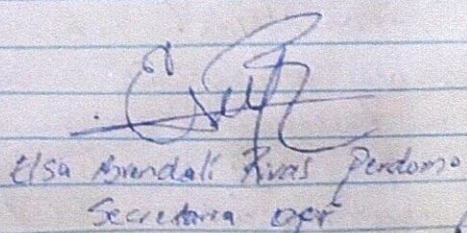 Elsa Arendali Rivas Perdomo
Secretaria